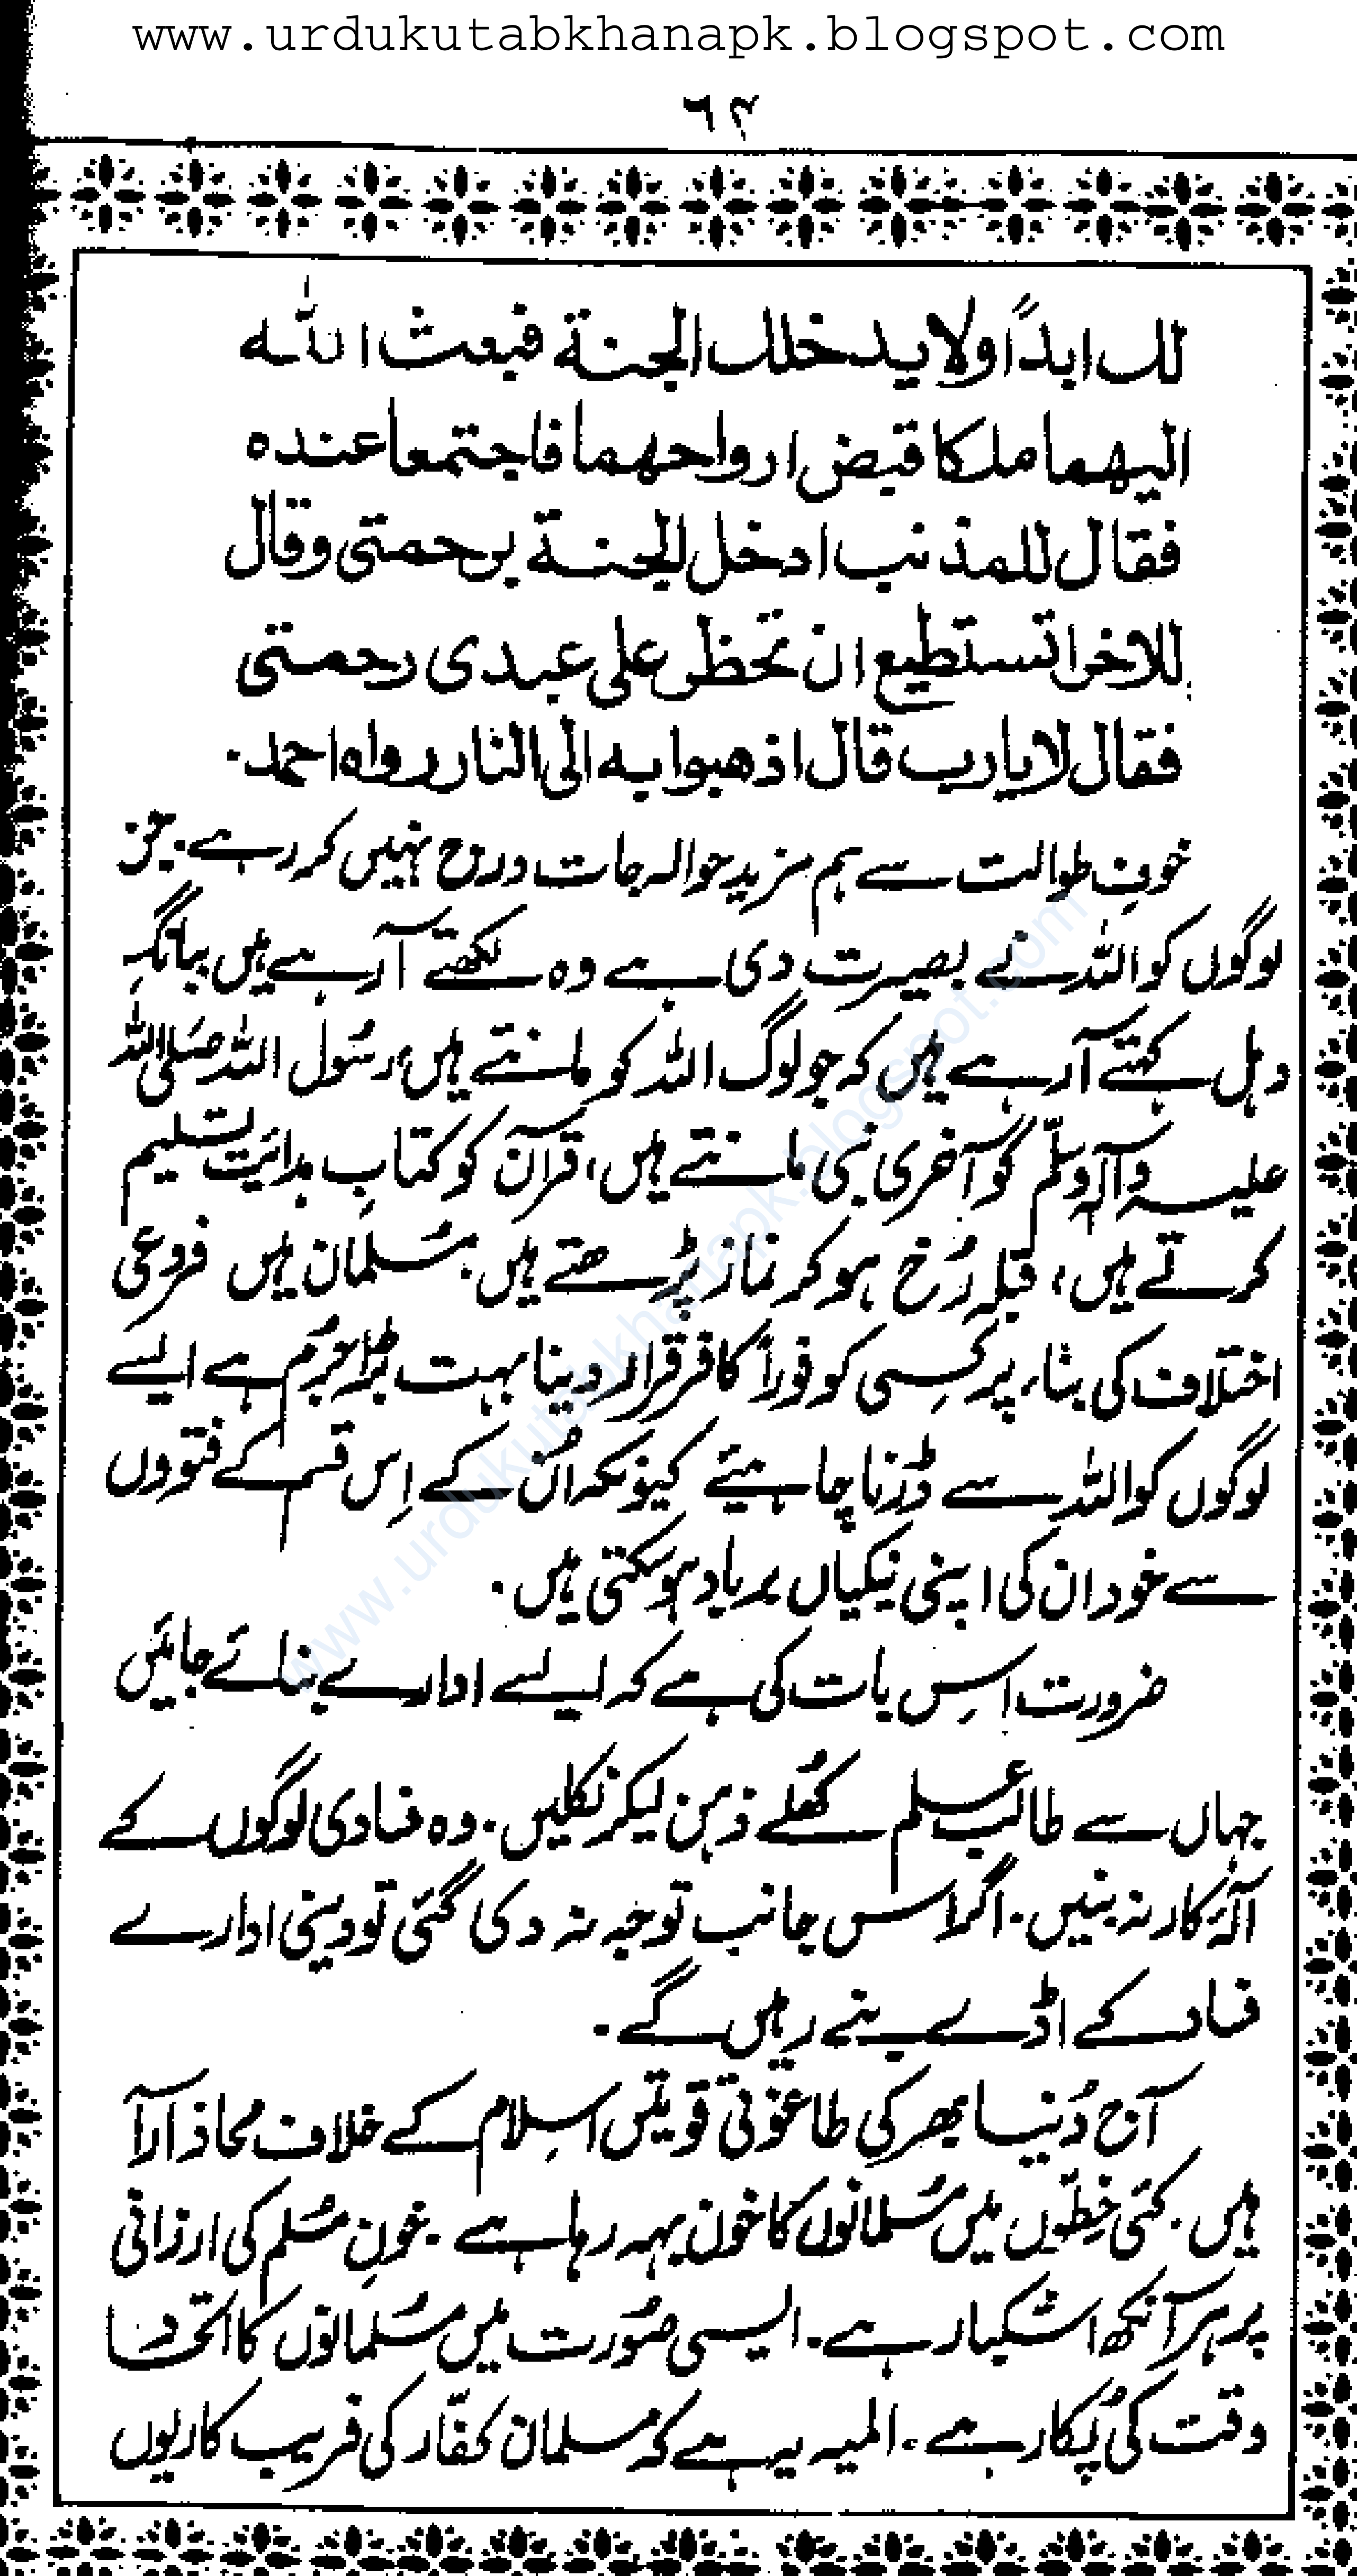 www.urdukutabkhanapk.blogspot.com
٦٣
لك ابداً ولا يدخلك الجنة فبعث الله
اليهما ملكا قبض ارواحهما فاجتمعا عنده
فقال للمذنب ادخل الجنة برحمتى وقال
للاخر اتستطيع ان تحظر على عبدى رحمتى
فقال لا يا رب قال اذهبوا به الى النار رواه احمد۔
خوفِ طوالت سے ہم مزید حوالہ جات درج نہیں کر رہے۔ جن
لوگوں کو اللہ نے بصیرت دی ہے وہ لکھتے آرہے ہیں ببانگِ
دہل کہتے آرہے ہیں کہ جو لوگ اللہ کو مانتے ہیں، رسُول اللہ صَلی اللہ
علیہ وآلہٖ وسلّم کو آخری نبی مانتے ہیں، قرآن کو کتابِ ہدائیت تسلیم
کرتے ہیں، قبلہ رُخ ہو کر نماز پڑھتے ہیں۔ مُسلمان ہیں فروعی
اختلاف کی بناء پر کِسی کو فوراً کافر قرار دینا بہت بڑا جُرم ہے ایسے
لوگوں کو اللہ سے ڈرنا چاہیئے کیونکہ اُن کے اِس قسم کے فتووں
سے خود ان کی اپنی نیکیاں برباد ہو سکتی ہیں۔
ضرورت اسِ بات کی ہے کہ ایسے ادارے بنائے جائیں
جہاں سے طالب علم کھُلے ذہن لیکر نکلیں۔ وہ فسادی لوگوں کے
آلۂ کار نہ بنیں۔ اگر اس جانب توجہ نہ دی گئی تو دینی ادارے
فساد کے اڈے بنے رہیں گے۔
آج دُنیا بھر کی طاغوتی قوتیں اسِلام کے خلاف محاذ آرآ
ہیں۔ کئی خِطّوں میں مُسلمانوں کا خون بہہ رہا ہے۔ خونِ مُسلم کی ارزانی
پر ہر آنکھ اشکبار ہے۔ ایسی صُورت میں مُسلمانوں کا اتحاد
وقت کی پُکار ہے۔ المیہ یہ ہے کہ مسلمان کفّار کی فریب کاریوں
www.urdukutabkhanapk.blogspot.com